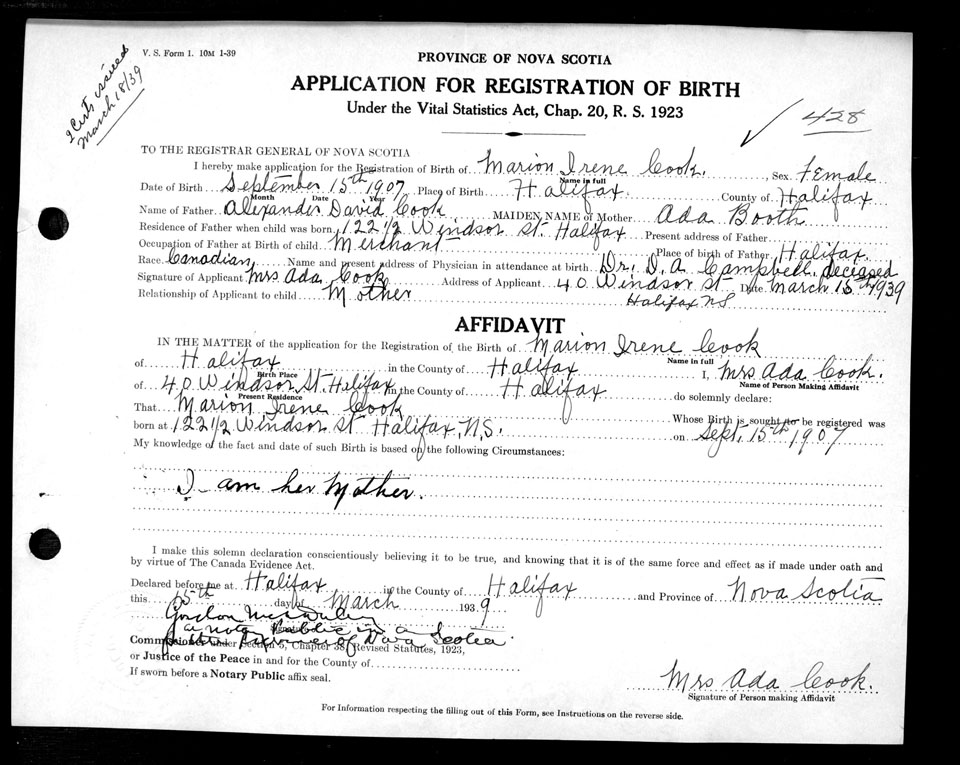 V. S. Form 1. 10M 1-39
2 Certs issued
March 18/39
PROVINCE OF NOVA SCOTIA
APPLICATION FOR REGISTRATION OF BIRTH
Under the Vital Statistics Act, Chap. 20, R. S. 1923
428
TO THE REGISTRAR GENERAL OF NOVA SCOTIA
I hereby make application for the Registration of Birth of Marion Irene Cook. , Sex Female
Name in full
Date of Birth September 15th 1907 Place of Birth Halifax. County of Halifax
Month Date Year
Name of Father Alexander David Cook MAIDEN NAME of Mother Ada Booth
Residence of Father when child was born, 122 1/2 Windsor St. Halifax Present address of Father
Occupation of Father at Birth of child Merchant Place of birth of Father Halifax.
Race Canadian, Name and present address of Physician in attendance at birth Dr. D. A. Campbell, deceased
Signature of Applicant Mrs Ada Cook Address of Applicant 40 Windsor St Date March 15th 1939
Relationship of Applicant to child Mother Halifax NS
AFFIDAVIT
IN THE MATTER of the application for the Registration of the Birth of Marion Irene Cook
Name in full
of Halifax in the County of Halifax I, Mrs Ada Cook.
Birth Place Name of Person Making Affidavit
of 40 Windsor St. Halifax in the County of Halifax do solemnly declare:
Present Residence
That Marion Irene Cook Whose Birth is sought to be registered was
born at 122 1/2 Windsor St Halifax, N.S. on Sept. 15th 1907
My knowledge of the fact and date of such Birth is based on the following Circumstances:
I am her Mother.
I make this solemn declaration conscientiously believing it to be true, and knowing that it is of the same force and effect as if made under oath and
by virtue of The Canada Evidence Act.
Declared before me at Halifax in the County of Halifax and Province of Nova Scotia
this 15th day of March 1939
Gordon
a notary Public in &
for the Province of Nova Scotia
Commissioner under Section 5, Chapter 38, Revised Statutes, 1923,
or Justice of the Peace in and for the County of
If sworn before a Notary Public affix seal.
Mrs Ada Cook.
Signature of Person making Affidavit
For Information respecting the filling out of this Form, see Instructions on the reverse side.